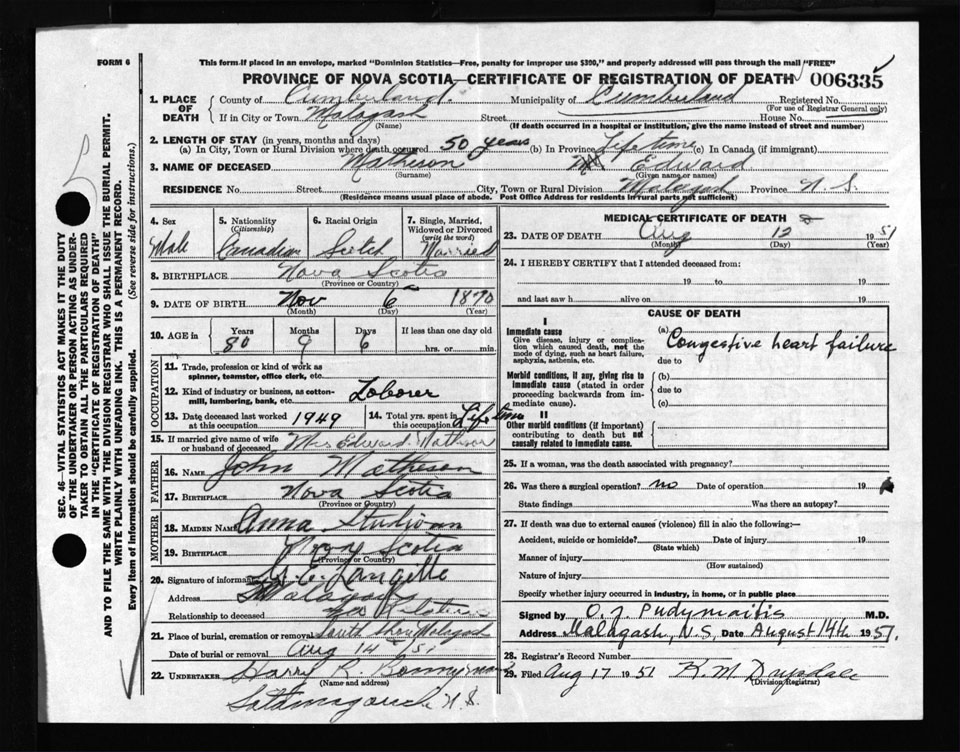 FORM 6
This form if placed in an envelope, marked "Dominion Statistics—Free, penalty for improper use $300," and properly addressed will pass through the mail "FREE"
PROVINCE OF NOVA SCOTIA—CERTIFICATE OF REGISTRATION OF DEATH 006335
1. PLACE OF DEATH County of Cumberland Municipality of Cumberland Registered No. (For use of Registrar General only)
If in City or Town Malagash (Name) Street House No.
(If death occurred in a hospital or institution, give the name instead of street and number)
2. LENGTH OF STAY (in years, months and days)
(a) In City, Town or Rural Division where death occurred 50 years (b) In Province Lifetime (c) In Canada (if immigrant)
3. NAME OF DECEASED Matheson (Surname) Edward (Given name or names)
RESIDENCE No. Street City, Town or Rural Division Malagash Province N.S.
(Residence means usual place of abode. Post Office Address for Residents in rural parts not sufficient)
4. Sex Male
5. Nationality (Citizenship) Canadian
6. Racial Origin Scotch
7. Single, Married, Widowed or Divorced (write the word) Married
8. BIRTHPLACE Nova Scotia (Province or Country)
9. DATE OF BIRTH Nov (Month) 6 (Day) 1870 (Year)
10. AGE in Years 80 Months 9 Days 6 If less than one day old hrs. or min.
OCCUPATION
11. Trade, profession or kind of work as spinner, teamster, office clerk, etc.
12. Kind of industry or business, as cotton-mill, lumbering, bank, etc. Laborer
13. Date deceased last worked at this occupation 1949
14. Total yrs. spent in this occupation Lifetime
15. If married give name of wife or husband of deceased Mrs Edward Matheson
FATHER
16. NAME John Matheson
17. BIRTHPLACE Nova Scotia (Province or Country)
MOTHER
18. MAIDEN NAME Anna
19. BIRTHPLACE Nova Scotia (Province or Country)
20. Signature of informant Langille
Address Malagash
Relationship to deceased
21. Place of burial, cremation or removal South Shore Malagash
Date of burial or removal Aug 14 / 51
22. UNDERTAKER Harry R. Bonnyman (Name and address)
N.S.
MEDICAL CERTIFICATE OF DEATH
23. DATE OF DEATH Aug (Month) 12 (Day) 1951 (Year)
24. I HEREBY CERTIFY that I attended deceased from:
19 to 19
and last saw h alive on 19
CAUSE OF DEATH
I
Immediate cause
Give disease, injury or complication which caused death, not the mode of dying, such as heart failure, asphyxia, asthenia, etc.
(a) Congestive heart failure
due to
Morbid conditions, if any, giving rise to immediate cause (stated in order proceeding backwards from immediate cause).
(b)
due to
(c)
II
Other morbid conditions (if important) contributing to death but not causally related to immediate cause.
25. If a woman, was the death associated with pregnancy?
26. Was there a surgical operation? no Date of operation 19
State findings Was there an autopsy?
27. If death was due to external causes (violence) fill in also the following:—
Accident, suicide or homicide? (State which) Date of injury 19
Manner of injury (How sustained)
Nature of injury
Specify whether injury occurred in industry, in home, or in public place
Signed by O. J. Pudymaitis M.D.
Address Malagash, N.S, Date August 14th 1951.
28. Registrar's Record Number
29. Filed Aug 17 1951 K. M. Drysdale (Division Registrar)
SEC. 46—VITAL STATISTICS ACT MAKES IT THE DUTY
OF THE UNDERTAKER OR PERSON ACTING AS UNDER-
TAKER TO OBTAIN ALL THE PARTICULARS REQUIRED
IN THE "CERTIFICATE OF REGISTRATION OF DEATH"
AND TO FILE THE SAME WITH THE DIVISION REGISTRAR WHO SHALL ISSUE THE BURIAL PERMIT.
WRITE PLAINLY WITH UNFADING INK. THIS IS A PERMANENT RECORD.
Every item of information should be carefully supplied. (See reverse side for instructions.)